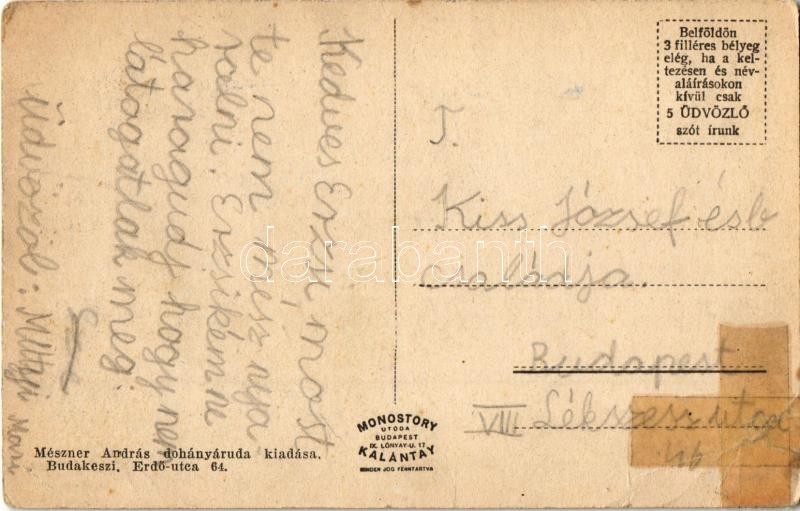 Kedves Erzsi, most
te nem mész nya
ralni. Erzsikém ne
haragudj hogy nem
látogatlak meg
Üdvözöl:
Belföldön
3 filléres bélyeg
elég, ha a kel-
tezésen és név-
aláírásokon
kívül csak
5 ÜDVÖZLŐ
szót írunk
T.
Kiss József és b
családja.
Budapest
VIII. utca
16
MONOSTORY
UTÓDA
BUDAPEST
IX. LÓNYAY-U. 17
KALÁNTAY
MINDEN JOG FENNTARTVA
Mészner András dohányáruda kiadása.
Budakeszi. Erdő-utca 64.
darabanth